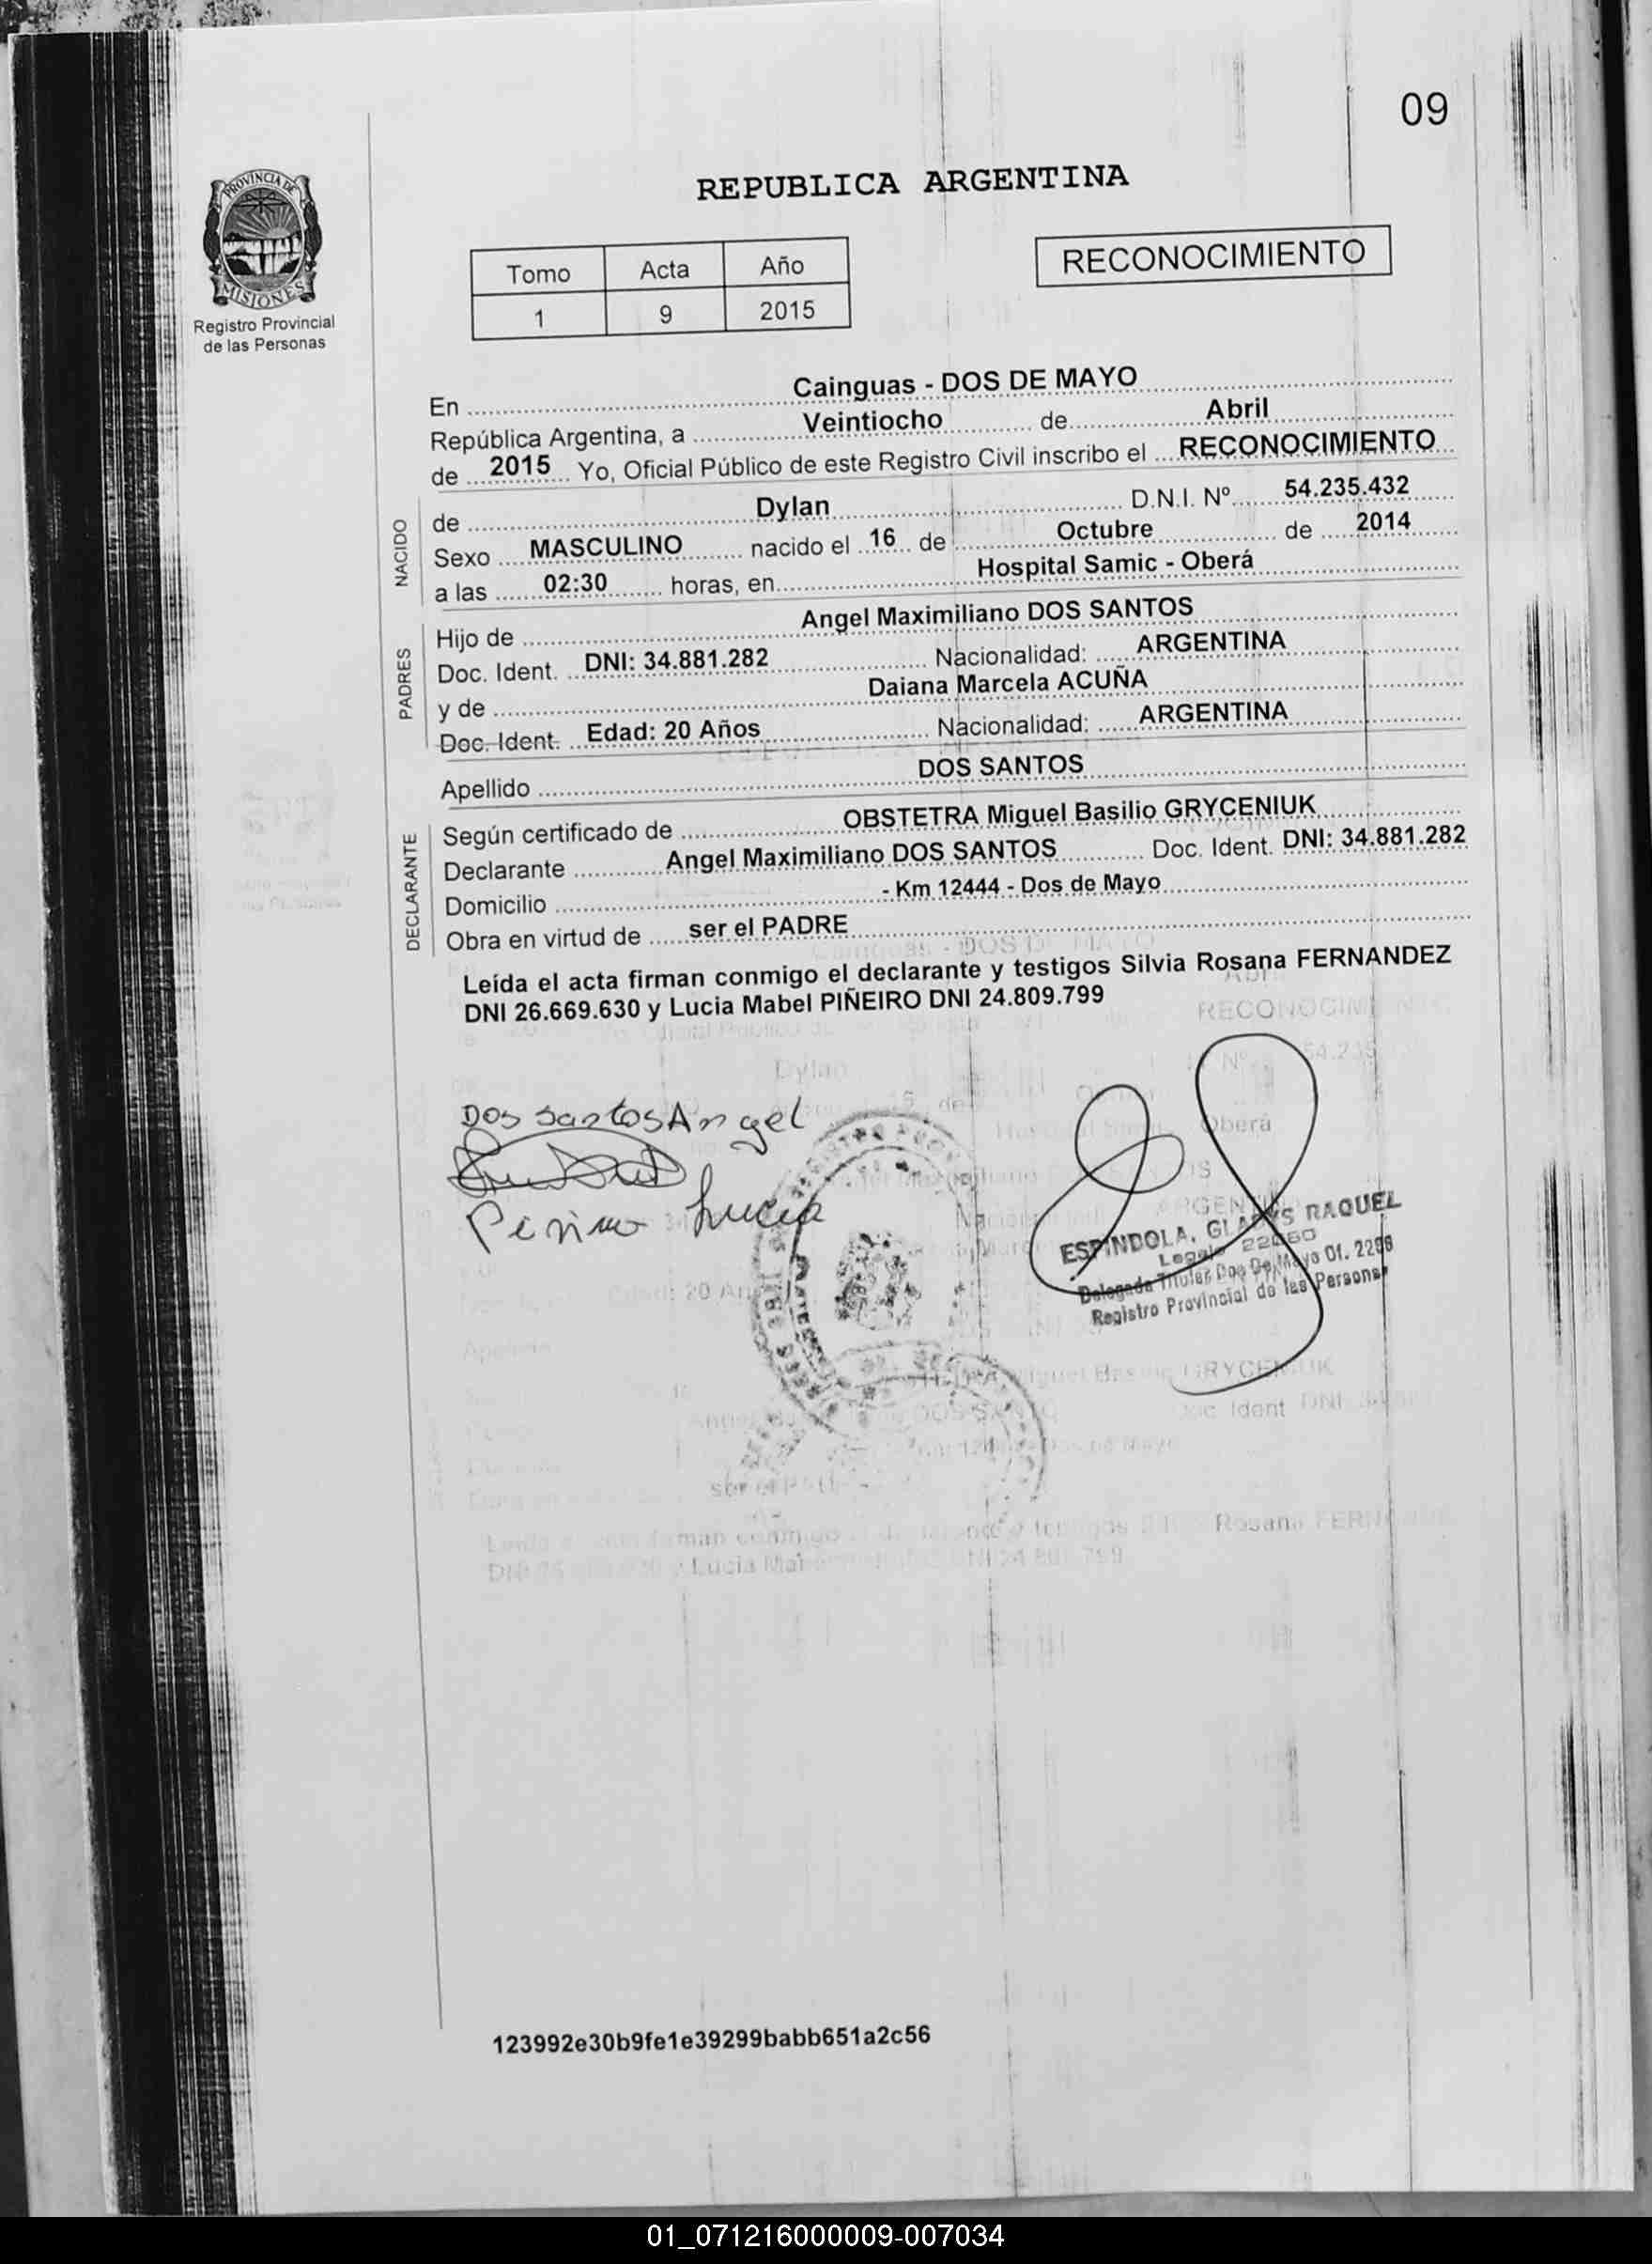 09
PROVINCIA DE
MISIONES
Registro Provincial
de las Personas
REPUBLICA ARGENTINA
Tomo Acta Año
1 9 2015
RECONOCIMIENTO
En Cainguas - DOS DE MAYO
República Argentina, a Veintiocho de Abril
de 2015 Yo, Oficial Público de este Registro Civil inscribo el RECONOCIMIENTO
NACIDO
de Dylan D.N.I. Nº 54.235.432
Sexo MASCULINO nacido el 16 de Octubre de 2014
a las 02:30 horas, en Hospital Samic - Oberá
PADRES
Hijo de Angel Maximiliano DOS SANTOS
Doc. Ident. DNI: 34.881.282 Nacionalidad: ARGENTINA
y de Daiana Marcela ACUÑA
Doc. Ident. Edad: 20 Años Nacionalidad: ARGENTINA
Apellido DOS SANTOS
DECLARANTE
Según certificado de OBSTETRA Miguel Basilio GRYCENIUK
Declarante Angel Maximiliano DOS SANTOS Doc. Ident. DNI: 34.881.282
Domicilio - Km 12444 - Dos de Mayo
Obra en virtud de ser el PADRE
Leída el acta firman conmigo el declarante y testigos Silvia Rosana FERNANDEZ
DNI 26.669.630 y Lucia Mabel PIÑEIRO DNI 24.809.799
Dos Santos Angel
Lucia
ESPINDOLA, GLADYS RAQUEL
Legajo
Delegada Titular Dos De Mayo Of. 2286
Registro Provincial de las Personas
123992e30b9fe1e39299babb651a2c56
01_071216000009-007034